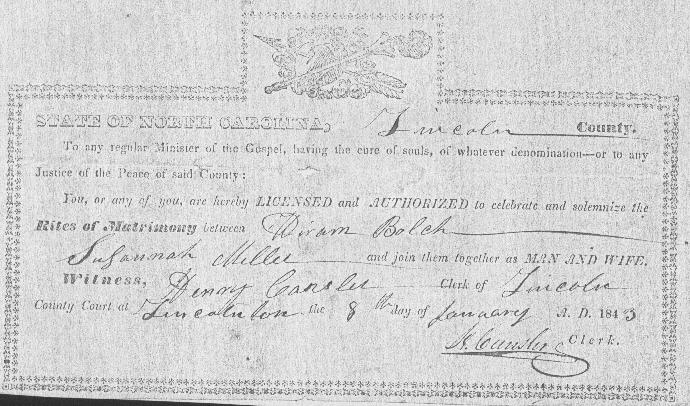 STATE OF NORTH CAROLINA, Lincoln County.
To any regular Minister of the Gospel, having the cure of souls, of whatever denomination—or to any
Justice of the Peace of said County:
You, or any of you, are hereby LICENSED and AUTHORIZED to celebrate and solemnize the
Rites of Matrimony between Hiram Balch
Susannah Miller and join them together as MAN AND WIFE.
Witness, Henry Cansler Clerk of Lincoln
County Court at Lincolnton the 8th day of January A. D. 1843
H. Cansler Clerk.